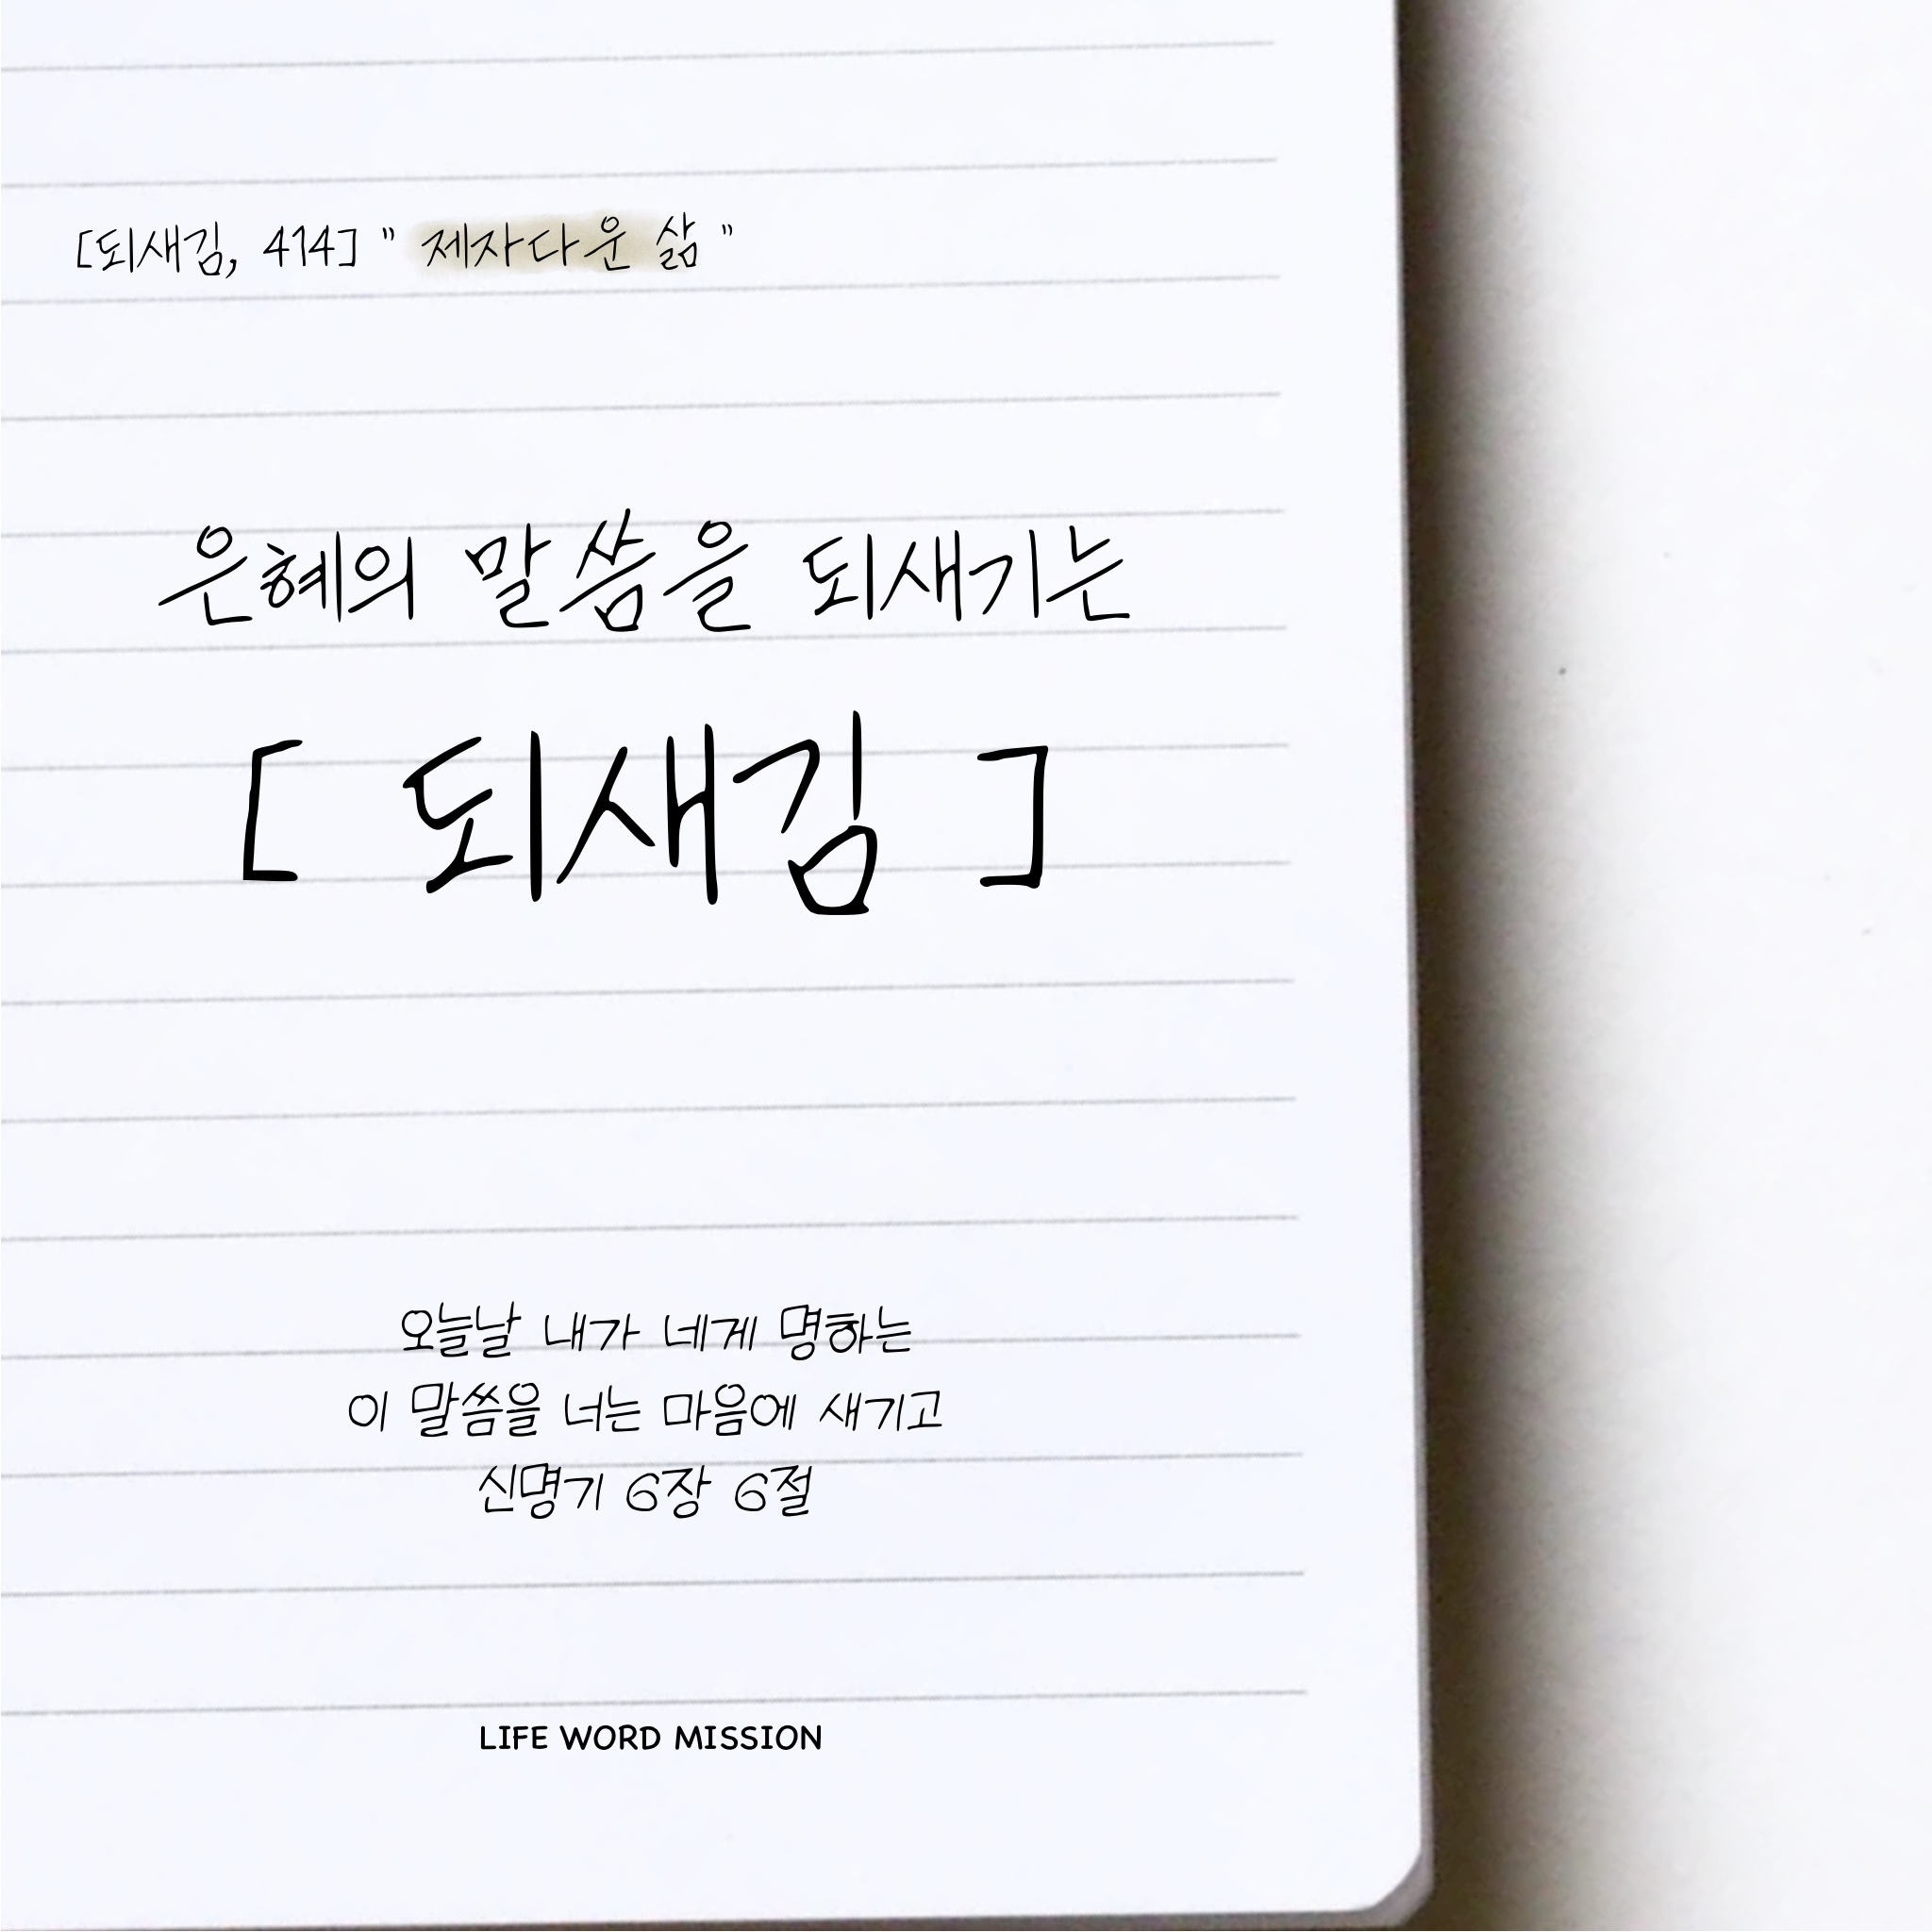 [되새김, 414] " 제자다운 삶 "
은혜의 말씀을 되새기는
[ 되새김 ]
오늘날 내가 네게 명하는
이 말씀을 너는 마음에 새기고
신명기 6장 6절
LIFE WORD MISSION